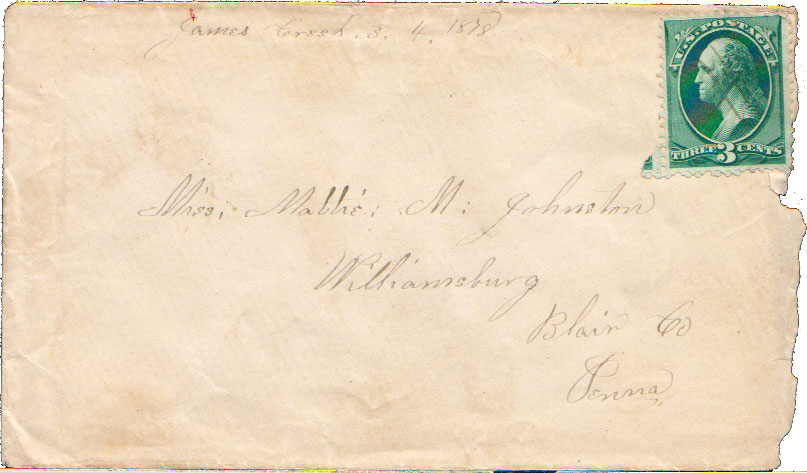 James Creek. 3. 4. 1878
U.S. POSTAGE
THREE 3 CENTS
Miss, Mattie: M: Johnston
Williamsburg
Blair Co
Penna